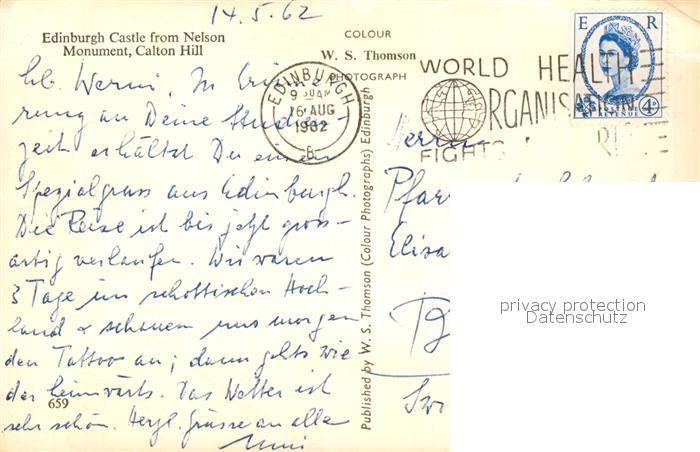 14.5.62
Edinburgh Castle from Nelson
Monument, Calton Hill
COLOUR
W. S. Thomson
PHOTOGRAPH
Published by W. S. Thomson (Colour Photographs) Edinburgh
659
E R
REVENUE
4D
EDINBURGH
9 30 AM
16 AUG
1962
B
WORLD HEALTH
ORGANISATION
FIGHTS
lb. Werni, In Erinne-
rung an Deine Studien-
zeit erhältst Du einen
Spezialgruss aus Edinburgh.
Die Reise ist bis jetzt gross-
artig verlaufen. Wir waren
3 Tage im schottischen Hoch-
land & schauen uns morgen
den Tattoo an; dann gehts wie
der heimwärts. Das Wetter ist
sehr schön. Herzl. Grüsse an alle
Herrn
Pfar
Elisa
B
Sw
privacy protection
Datenschutz